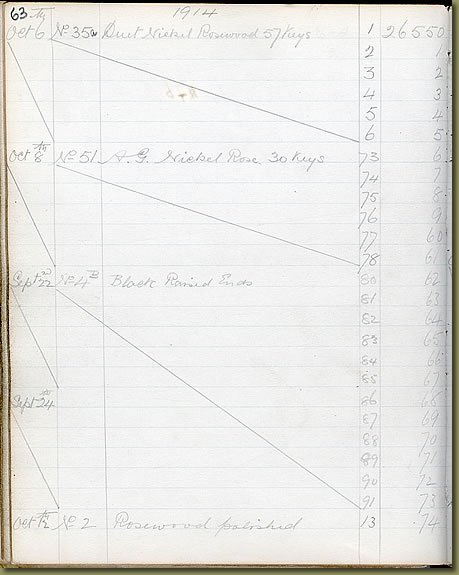 63 1914
Oct 6th No 35a Duet Nickel Rosewood 57 Keys 1 26550
2 1
3 2
4 3
5 4
6 5
Oct 8th No 51 A.G. Nickel Rose 30 Keys 73 6
74 7
75 8
76 9
77 60
78 61
Sept 22nd No 4B Black Raised Ends 80 62
81 63
82 64
83 65
84 66
85 67
Sept 24th 86 68
87 69
88 70
89 71
90 72
91 73
Oct 12th No 2 Rosewood polished 13 74